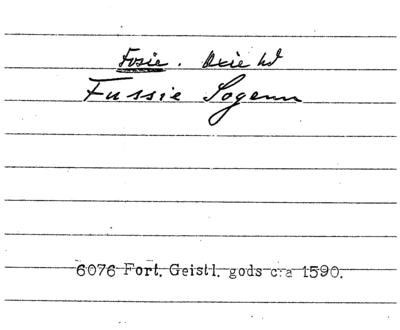 Fosie. Oxie hd
Fussie Sogenn
6076 Fort. Geistl. gods c:a 1590.